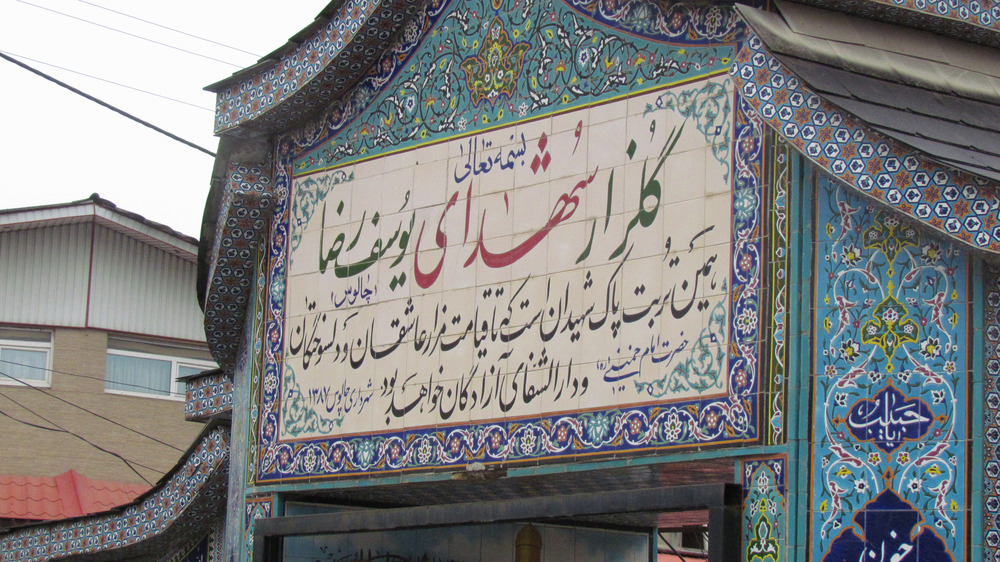 بسمه تعالی
گلزار شهدای یوسف رضا
(چالوس)
همین تربت پاک شهیدان است که تا قیامت مزار عاشقان و دلسوختگان
و دارالشفای آزادگان خواهد بود
حضرت امام خمینی (ره)
شهرداری چالوس ۱۳۸۷
خون